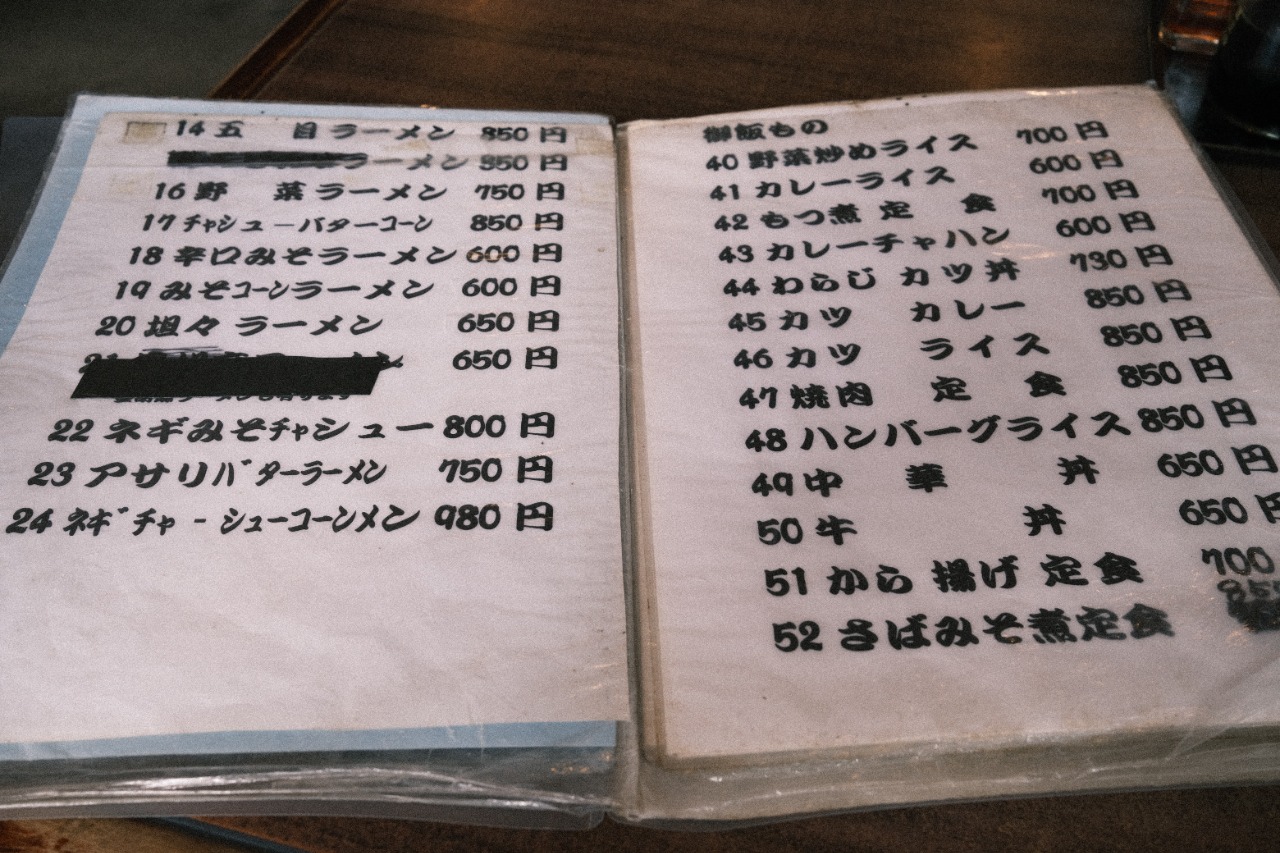 14 五 目 ラーメン 850 円
ラーメン 950 円
16 野 菜 ラーメン 750 円
17 チャシューバターコーン 850 円
18 辛口みそラーメン 600 円
19 みそコーンラーメン 600 円
20 坦々 ラーメン 650 円
21 650 円
22 ネギみそチャシュー 800 円
23 アサリバターラーメン 750 円
24 ネギチャ-シューコーンメン 980 円
御飯もの
40 野菜炒めライス 700 円
41 カレーライス 600 円
42 もつ煮 定 食 700 円
43 カレーチャハン 600 円
44 わらじ カツ丼 730 円
45 カツ カレー 850 円
46 カツ ライス 850 円
47 焼肉 定 食 850 円
48 ハンバーグライス 850 円
49 中 華 丼 650 円
50 牛 丼 650 円
51 から 揚げ 定食 700
52 さばみそ煮定食 850